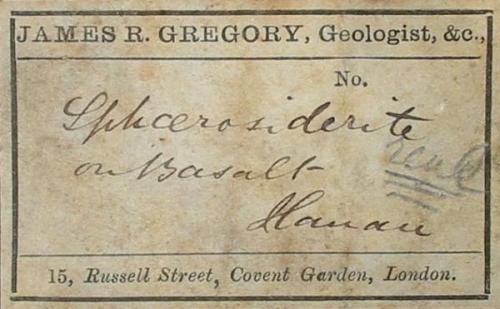 JAMES R. GREGORY, Geologist, &c.,
No.
Sphærosiderite
on Basalt
Hanau
15, Russell Street, Covent Garden, London.